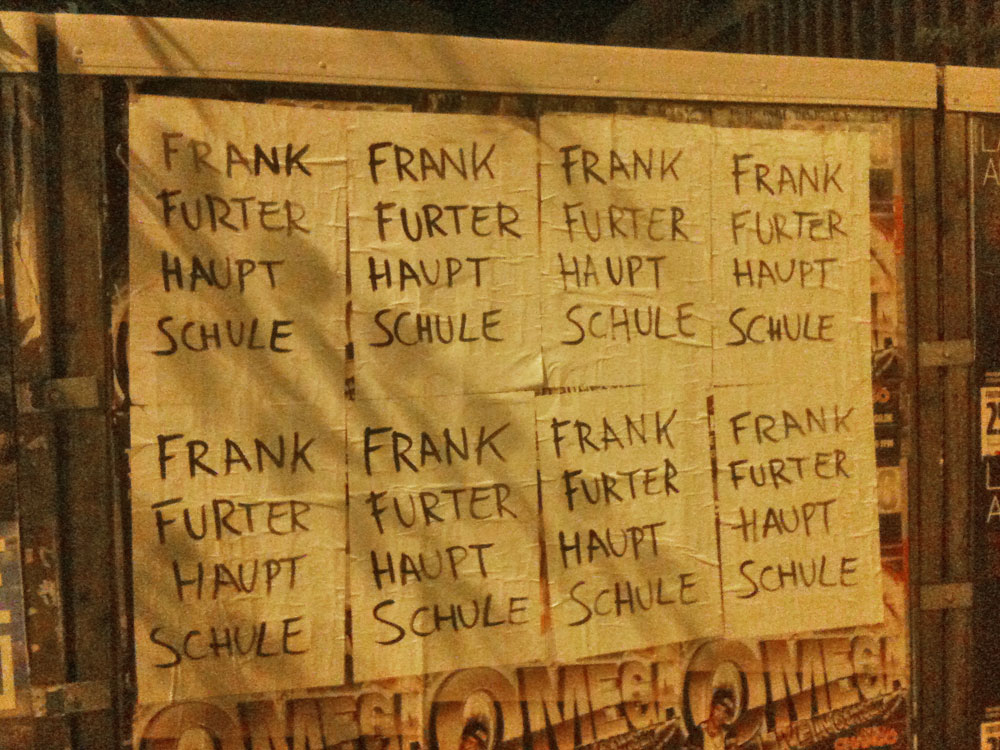 FRANK
FURTER
HAUPT
SCHULE
FRANK
FURTER
HAUPT
SCHULE
FRANK
FURTER
HAUPT
SCHULE
FRANK
FURTER
HAUPT
SCHULE
FRANK
FURTER
HAUPT
SCHULE
FRANK
FURTER
HAUPT
SCHULE
FRANK
FURTER
HAUPT
SCHULE
FRANK
FURTER
HAUPT
SCHULE
OMEGA
OMEGA
OMEGA